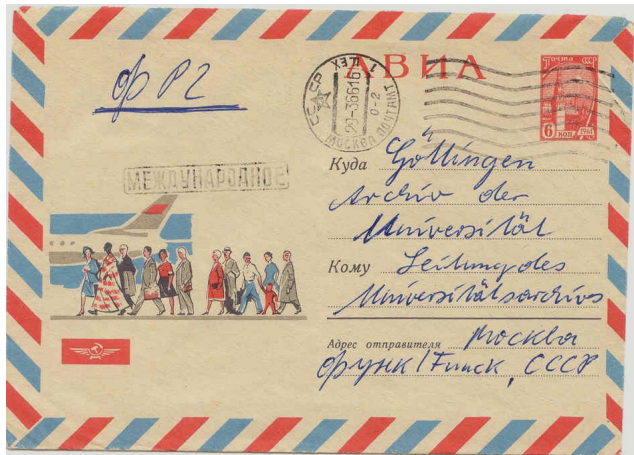 АВИА
ПОЧТА СССР
6 КОП 1961
СССР
1 ЦЕХ
МОСКВА ПОЧТАМТ
ФРГ
МЕЖДУНАРОДНОЕ
Куда Göttingen
Archiv der
Universität
Кому Leitung des
Universitätsarchivs
Адрес отправителя Москва
Функ/Funck, СССР